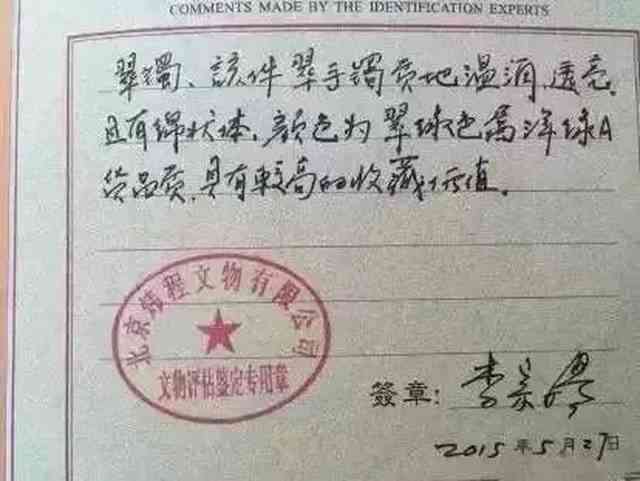 COMMENTS MADE BY THE IDENTIFICATION EXPERTS
翠镯、該件翠手镯质地温润,透亮,
且有绵状体,颜色为翠绿色属洋绿A
货品质,具有較高的收藏价值。
北京炜程文物有限公司
文物评估鉴定专用章
簽章:李
2015年5月27日